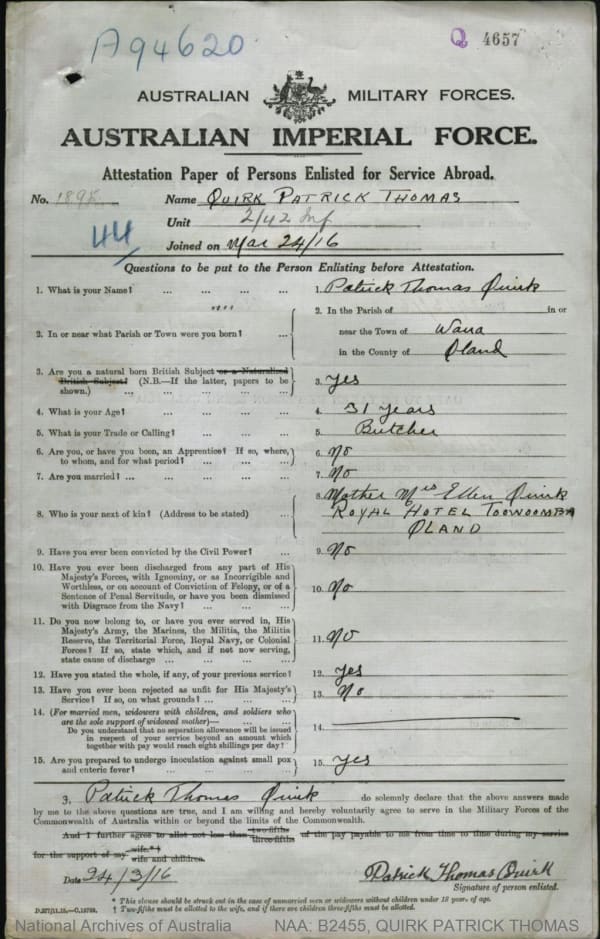 A94620
Q 4657
AUSTRALIAN MILITARY FORCES.
AUSTRALIAN IMPERIAL FORCE.
Attestation Paper of Persons Enlisted for Service Abroad.
No. 1895 Name QUIRK PATRICK THOMAS
Unit 2/42 Inf
44 Joined on Mar 24/16
Questions to be put to the Person Enlisting before Attestation.
1. What is your Name? ... ... ... ... 1. Patrick Thomas Quirk
2. In or near what Parish or Town were you born? ... 2. In the Parish of in or
near the Town of
in the County of Qland
3. Are you a natural born British Subject or a Naturalized
British Subject? (N.B.—If the latter, papers to be
shown.) ... ... ... ... ... 3. Yes
4. What is your Age? ... ... ... ... 4. 31 years
5. What is your Trade or Calling? ... ... ... 5. Butcher
6. Are you, or have you been, an Apprentice? If so, where,
to whom, and for what period? ... ... ... 6. No
7. Are you married? ... ... ... ... ... 7. No
8. Who is your next of kin? (Address to be stated) ... 8. Mother Mrs Ellen Quirk
ROYAL HOTEL TOOWOOMBA
QLAND
9. Have you ever been convicted by the Civil Power? ... 9. No
10. Have you ever been discharged from any part of His
Majesty's Forces, with Ignominy, or as Incorrigible and
Worthless, or on account of Conviction of Felony, or of a
Sentence of Penal Servitude, or have you been dismissed
with Disgrace from the Navy? ... ... ... 10. No
11. Do you now belong to, or have you ever served in, His
Majesty's Army, the Marines, the Militia, the Militia
Reserve, the Territorial Force, Royal Navy, or Colonial
Forces? If so, state which, and if not now serving,
state cause of discharge ... ... ... ... 11. No
12. Have you stated the whole, if any, of your previous service? 12. Yes
13. Have you ever been rejected as unfit for His Majesty's
Service? If so, on what grounds? ... ... ... 13. No
14. (For married men, widowers with children, and soldiers who
are the sole support of widowed mother)— ... ...
Do you understand that no separation allowance will be issued
in respect of your service beyond an amount which
together with pay would reach eight shillings per day? 14.
15. Are you prepared to undergo inoculation against small pox
and enteric fever? ... ... ... ... 15. Yes
I, Patrick Thomas Quirk do solemnly declare that the above answers made
by me to the above questions are true, and I am willing and hereby voluntarily agree to serve in the Military Forces of the
Commonwealth of Australia within or beyond the limits of the Commonwealth.
And I further agree to allot not less than two-fifths three-fifths of the pay payable to me from time to time during my service
for the support of my wife.*† wife and children.
Date 24/3/16 Patrick Thomas Quirk
Signature of person enlisted.
* This clause should be struck out in the case of unmarried men or widowers without children under 18 years of age.
† Two-fifths must be allotted to the wife, and if there are children three-fifths must be allotted.
National Archives of Australia NAA: B2455, QUIRK PATRICK THOMAS